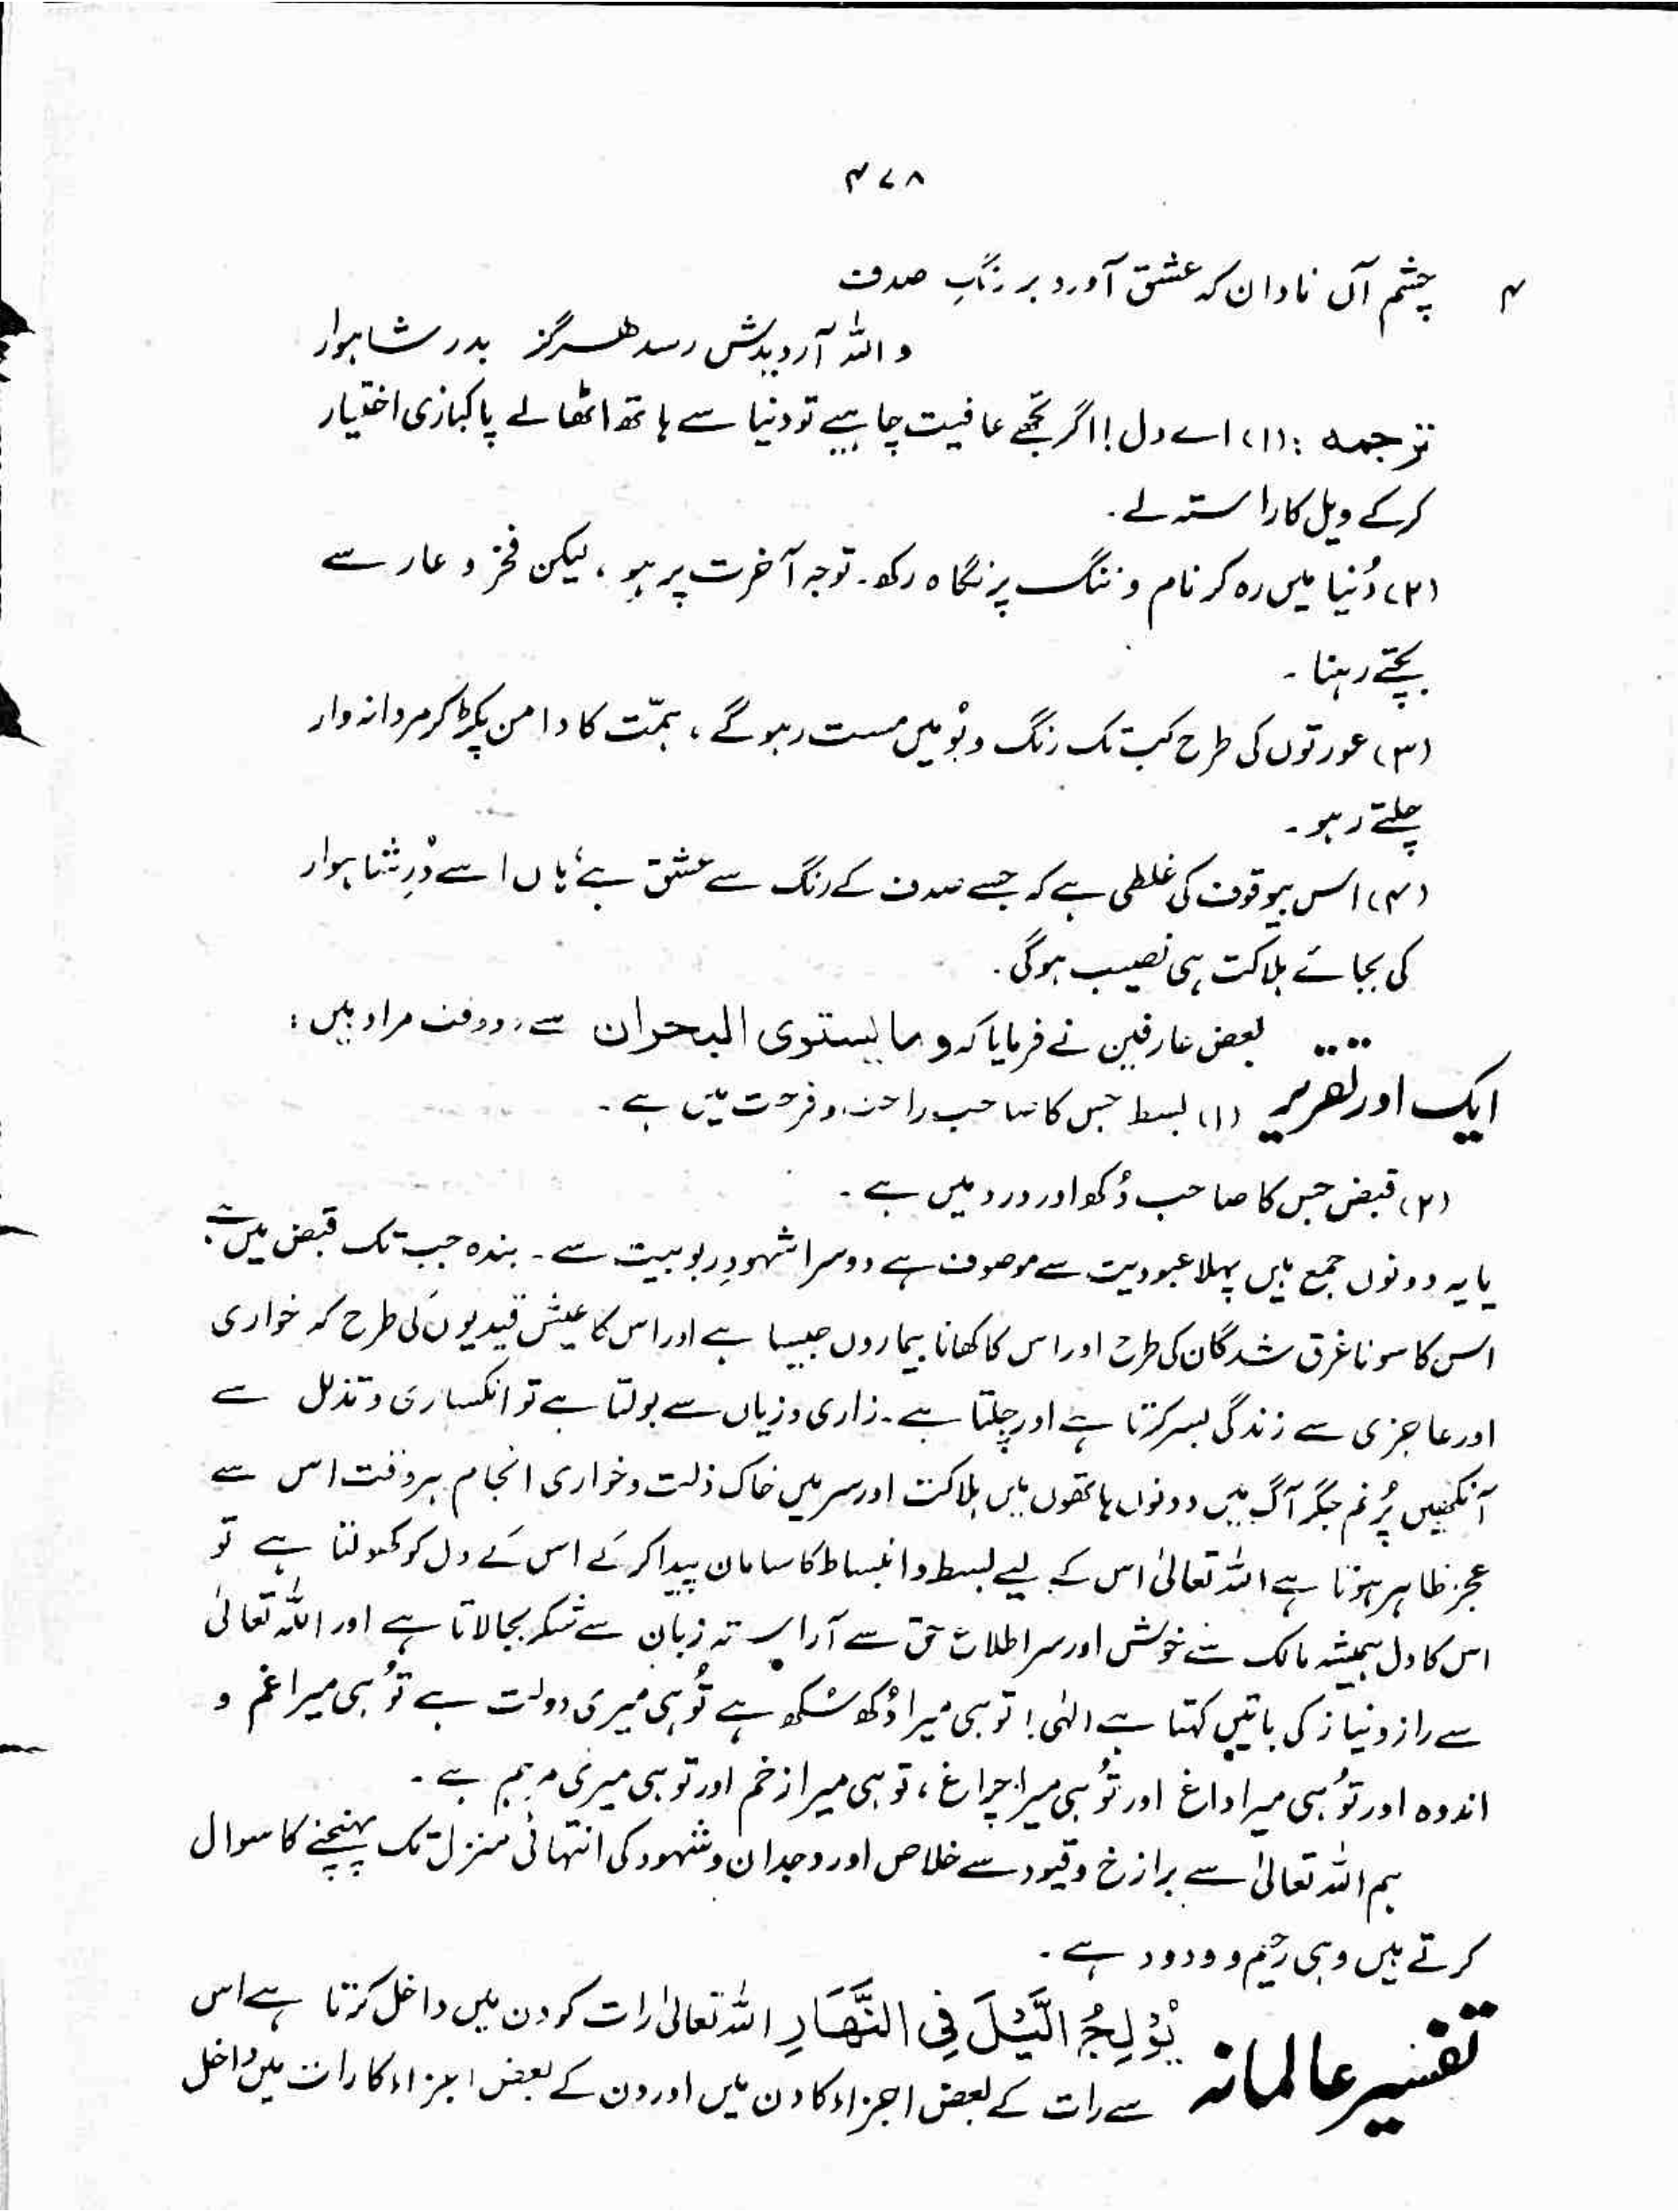 ۴۷۸
۴ چشم آں نادان کہ عشق آورد بر رنگِ صدف
واللہ آر دیدش رسد ہرگز بدر شاہوار
ترجمہ : (۱) اے دل! اگر تجھے عافیت چاہیے تو دنیا سے ہاتھ اٹھالے پاکبازی اختیار
کرکے ویل کا راستہ لے۔
(۲) دُنیا میں رہ کر نام و ننگ پر نگاہ رکھ۔ توجہ آخرت پر ہو، لیکن فخر و عار سے
بچتے رہنا۔
(۳) عورتوں کی طرح کب تک رنگ و بُو میں مست رہوگے، ہمّت کا دامن پکڑ کر مردانہ وار
چلتے رہو۔
(۴) اس بیوقوف کی غلطی ہے کہ جسے صدف کے رنگ سے عشق ہے، ہاں اسے دُرِ شاہوار
کی بجائے ہلاکت ہی نصیب ہوگی۔
ایک اور تقریر بعض عارفین نے فرمایا کہ وما یستوی البحران سے دو وقت مراد ہیں :
(۱) بسط جس کا صاحب راحت و فرحت میں ہے۔
(۲) قبض جس کا صاحب دُکھ اور درد میں ہے۔
یا یہ دونوں جمع ہیں پہلا عبودیت سے موصوف ہے دوسرا شہودِ ربوبیت سے۔ بندہ جب تک قبض میں ہے
اس کا سونا غرق شدگان کی طرح اور اس کا کھانا بیماروں جیسا ہے اور اس کا عیش قیدیوں کی طرح کہ خواری
اور عاجزی سے زندگی بسر کرتا ہے اور چلتا ہے۔ زاری و زیاں سے بولتا ہے تو انکساری و تذلل سے
آنکھیں پُرنم جگر آگ میں دونوں ہاتھوں میں ہلاکت اور سر میں خاک ذلت و خواری انجام ہر وقت اس سے
عجز ظاہر ہوتا ہے اللہ تعالیٰ اس کے لیے بسط و انبساط کا سامان پیدا کرکے اس کے دل کو کھولتا ہے تو
اس کا دل ہمیشہ مالک سے خوش اور سر اطلاع حق سے آراستہ زبان سے شکر بجا لاتا ہے اور اللہ تعالیٰ
سے راز و نیاز کی باتیں کہتا ہے الٰہی! تو ہی میرا دُکھ سُکھ ہے تُو ہی میری دولت ہے تُو ہی میرا غم و
اندوہ اور تُو ہی میرا داغ اور تُو ہی میرا چراغ، تو ہی میرا زخم اور تو ہی میری مرہم ہے۔
ہم اللہ تعالیٰ سے برازخ و قیود سے خلاص اور وجدان و شہود کی انتہائی منزل تک پہنچنے کا سوال
کرتے ہیں وہی رحیم و ودود ہے۔
تفسیر عالمانہ یُوْلِجُ الَّیْلَ فِی النَّھَارِ اللہ تعالیٰ رات کو دن میں داخل کرتا ہے اس
سے رات کے بعض اجزاء کا دن میں اور دن کے بعض اجزاء کا رات میں داخل